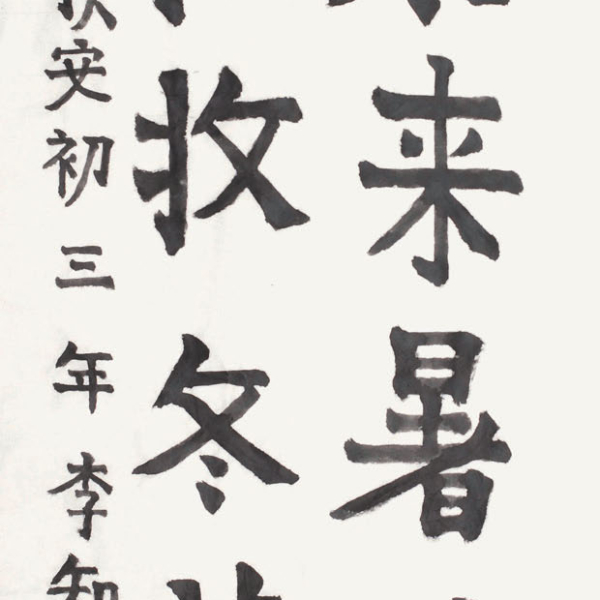 来暑
收冬
安初三年李知